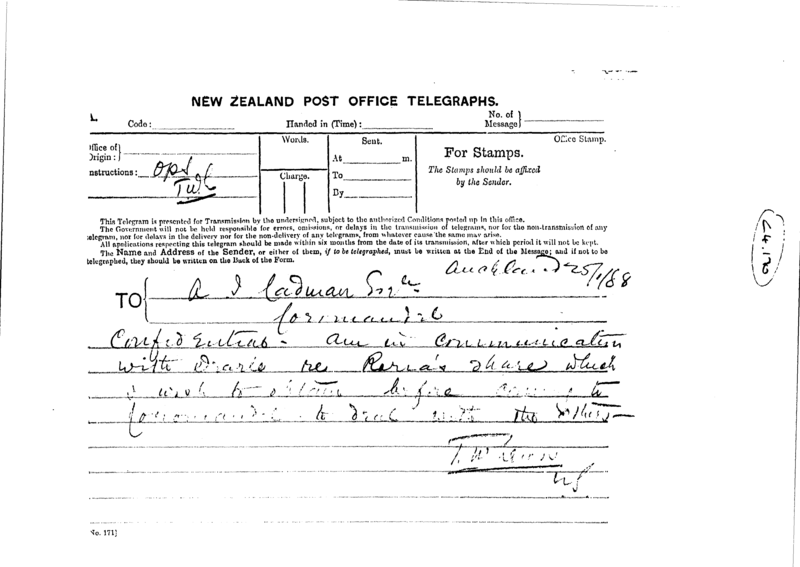 NEW ZEALAND POST OFFICE TELEGRAPHS.
Code:
Handed in (Time):
No. of
Message
ffice of
Origin:
nstructions:
Words.
Charge.
Sent.
At m.
To
By
For Stamps.
The Stamps should be affixed
by the Sender.
Office Stamp.
This Telegram is presented for Transmission by the undersigned, subject to the authorized Conditions posted up in this office.
The Government will not be held responsible for errors, omissions, or delays in the transmission of telegrams, nor for the non-transmission of any
telegram, nor for delays in the delivery nor for the non-delivery of any telegrams, from whatever cause the same may arise.
All applications respecting this telegram should be made within six months from the date of its transmission, after which period it will not be kept.
The Name and Address of the Sender, or either of them, if to be telegraphed, must be written at the End of the Message; and if not to be
telegraphed, they should be written on the Back of the Form.
Auckland 25/1/88
TO
A J Cadman Esqre
Coromandel
Confidential - Am in communication
with re share which
I wish to obtain before coming to
Coromandel to deal with the others
C4.120
No. 171]